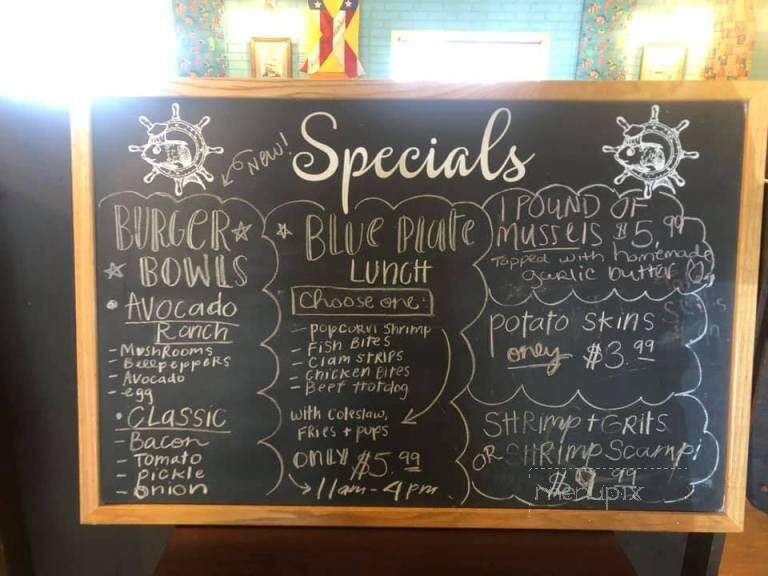 Specials
NEW!
BURGER
BOWLS
• Avocado
Ranch
- MushRooms
- Bellpeppers
- Avocado
- egg
• CLASSIC
- Bacon
- Tomato
- pickle
- onion
BLUE PLATE
LUNCH
Choose one:
- popcorn shrimp
- Fish Bites
- Clam strips
- Chicken Bites
- Beef Hotdog
with coleslaw,
FRIES + pups
ONLY $5.99
11am - 4pm
1 POUND OF
Mussels $5.99
Topped with homemade
garlic butter
potato skins
only $3.99
SHRimp + GRits
OR SHRimp Scampi
$9.99
Menupix